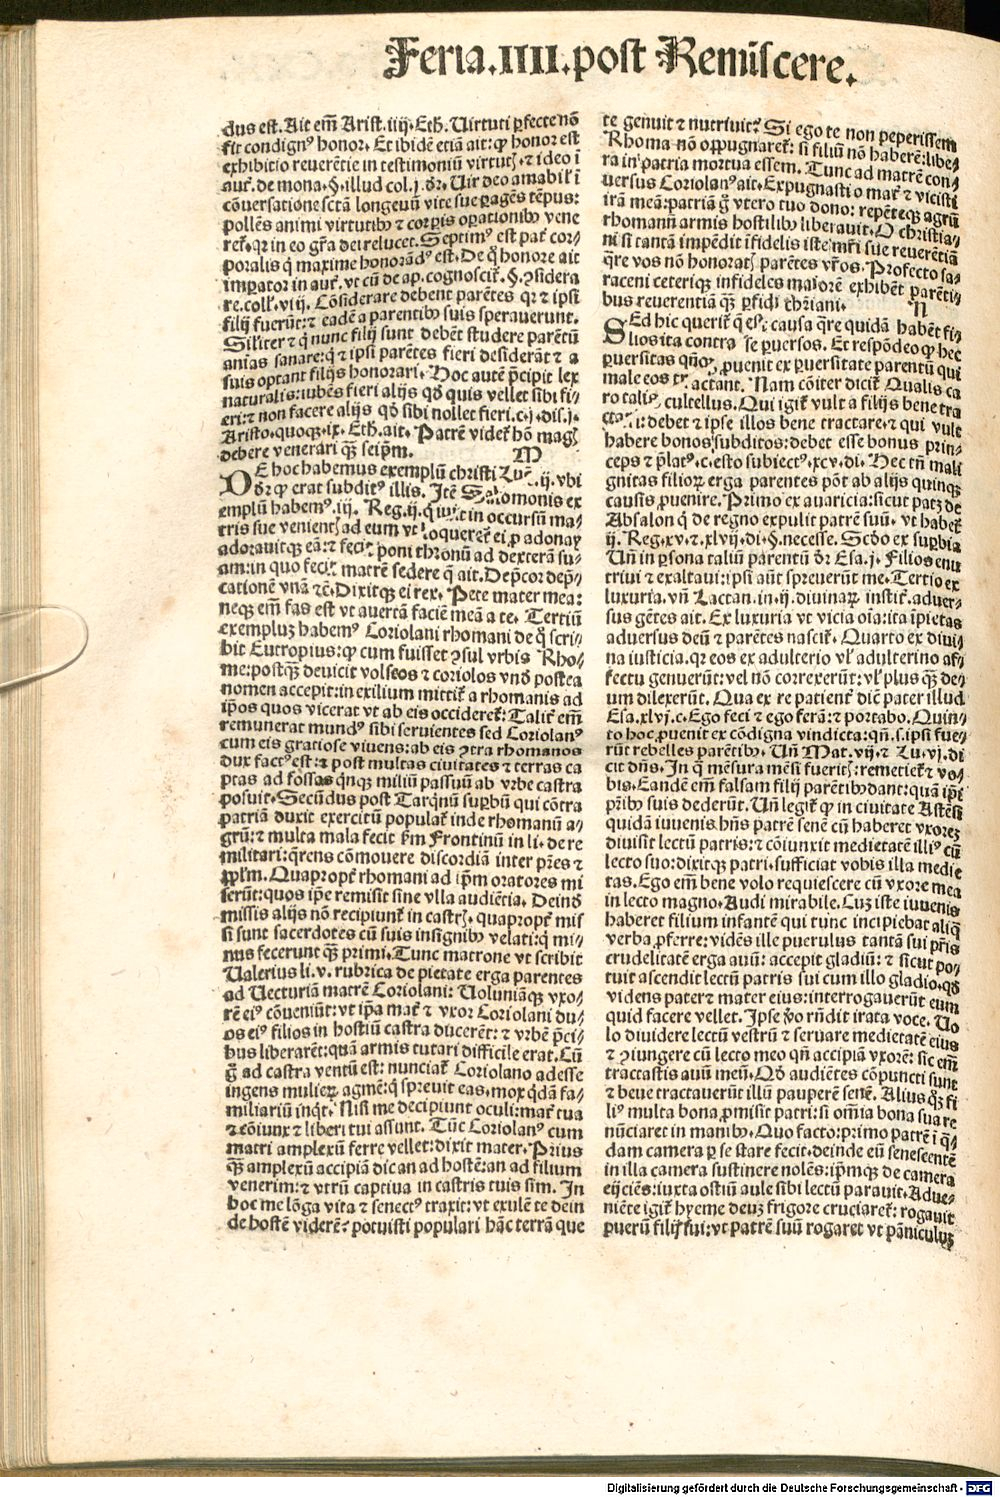 Feria.IIII.post Remiscere.
dus est. Ait em̄ Arist.iiij.Eth. Uirtuti ꝑfecte nō
fit condignꝰ honor. Et ibidē etiā ait: ꝙ honor est
exhibitio reuerētie in testimoniū virtutꝭ. ⁊ ideo ī
auct̄. de mona.§.illud col.j.dr̄. Uir deo amabil̓ ī
cōuersatione sctā longeuū vite sue ꝑagēs tēpus:
pollēs animi virtutibꝰ ⁊ corꝑis oꝑationibꝰ vene
ret̄.qr in eo gr̄a dei relucet. Septimꝰ est patr̄ cor⸗
poralis q̄ maxime honorādꝰ est. De qͦ honore ait
imꝑator in auct̄. vt cū de ap. cognoscit̄.§.ꝯsidera
re. coll̓.viij. Cōsiderare debent parētes qr ⁊ ipsi
filij fuerūt: ⁊ eadē a parentibꝰ suis sperauerunt.
Sil̓iter ⁊ q̄ nunc filij sunt debēt studere parētū
anias sanare: q̄ ⁊ ipsi parētes fieri desiderāt ⁊ a
suis optant filijs honorari. Hoc autē p̄cipit lex
naturalis: iubēs fieri alijs qd̓ quis vellet sibi fi⸗
eri: ⁊ non facere alijs qd̓ sibi nollet fieri.c.j.dis.j.
Aristo. quoqꝫ.ix. Eth. ait. Patrē videt̄ hō magꝭ
debere venerari qͣꝫ seip̄m. M
DE hoc habemus exemplū christi Luc̄.ij. vbi
dr̄ ꝙ erat subditꝰ illis. Itē Salomonis ex
emplū habemꝰ.iij. Reg.ij. in occursū ma⸗
tris sue venientꝭ ad eum vt loqueret̄ ei ꝓ adonay
adorauitqꝫ eā: ⁊ fecit poni thronū ad dexterā su⸗
am: in quo fecit matrē sedere q̄ ait. Dep̄cor dep̄⸗
cationē vnā ⁊c̄. Dixitqꝫ ei rex. Pete mater mea:
neqꝫ em̄ fas est vt auertā faciē meā a te. Tertiū
exempluꝫ habemꝰ Coriolani rhomani de qͦ scri⸗
bit Eutropius: ꝙ cum fuisset ꝯsul vrbis Rho⸗
me: postqͣꝫ deuicit volseos ⁊ coriolos vnd̓ postea
nomen accepit: in exilium mittit̄ a rhomanis ad
ip̄os quos vicerat vt ab eis occideret̄: Talit̄ em̄
remunerat mundꝰ sibi seruientes sed Coriolanꝰ
cum eis gratiose viuens: ab eis ꝯtra rhomanos
dux factꝰ est: ⁊ post multas ciuitates ⁊ terras ca
ptas ad fossas qͥnqꝫ miliū passuū ab vrbe castra
posuit. Secūdus post Tarqͥnū suꝑbū qui cōtra
patriā duxit exercitū populat̄ inde rhomanū a⸗
grū: ⁊ multa mala fecit ẜm Frontinū in li. de re
militari: q̄rens cōmouere discordiā inter pr̄es ⁊
ppl̓m. Quapropt̄ rhomani ad ip̄m oratores mi
serūt: quos ip̄e remisit sine vlla audiētia. Deind̓
missis alijs nō recipiunt̄ in castrꝭ. quapropt̄ mis
si sunt sacerdotes cū suis insignibꝰ velati: q̄ mi⸗
nus fecerunt qͣꝫ primi. Tunc matrone vt scribit
Ualerius li.v. rubrica de pietate erga parentes
ad Uecturiā matrē Coriolani: Uoluniāqꝫ vxo⸗
rē eiꝰ cōueniūt: vt ip̄a mat̄ ⁊ vxor Coriolani du⸗
os eiꝰ filios in hostiū castra ducerēt: ⁊ vrbē p̄ci⸗
bus liberarēt: quā armis tutari difficile erat. Cū
g̊ ad castra ventū est: nunciat̄ Coriolano adesse
ingens mulieꝝ agmē: q̄ spreuit eas. mox qͥdā fa⸗
miliariū inqͥt. Nisi me decipiunt oculi: mat̄ tua
⁊ cōiunx ⁊ liberi tui assunt. Tūc Coriolanꝰ cum
matri amplexū ferre vellet: dixit mater. Prius
qͣꝫ amplexū accipiā dic an ad hostē: an ad filium
venerim: ⁊ vtrū captiua in castris tuis sim. In
hoc me lōga vita ⁊ senectꝰ traxit: vt exulē te dein
de hostē viderē? potuisti populari hāc terrā que
te genuit ⁊ nutriuit? Si ego te non peperissem
Rhoma nō oppugnaret̄: si filiū nō haberē: libe⸗
ra in patria mortua essem. Tunc ad matrē con⸗
uersus Coriolanꝰ ait. Expugnasti o mat̄ ⁊ vicisti
irā meā: patriā g̊ vtero tuo dono: repēteqꝫ agrū
rhomanū armis hostilibꝰ liberauit. O christia⸗
ni si tantā impēdit īfidelis iste mr̄i sue reuerētiā
qͣre vos nō honoratꝭ parētes vr̄os. Profecto sa⸗
raceni ceteriqꝫ infideles maiorē exhibēt parēti⸗
bus reuerentiā qͣꝫ ꝑfidi chr̄iani. N
SEd hic querit̄ q̄ est causa qͣre quidā habēt fi⸗
lios ita contra se ꝑuersos. Et respōdeo ꝙ hec
ꝑuersitas qn̄oꝗ ꝓuenit ex ꝑuersitate parentū qui
male eos tractant. Nam cōiter dicit̄ Qualis ca
ro talis cultellus. Qui igit̄ vult a filijs bene tra
ctari: debet ⁊ ipse illos bene tractare. ⁊ qui vult
habere bonos subditos: debet esse bonus prin⸗
ceps ⁊ p̄latꝰ.c. esto subiectꝰ.xcv.di. Hec tn̄ mali
gnitas filioꝝ erga parentes pōt ab alijs quinqꝫ
causis ꝓuenire. Primo ex auaricia: sicut patꝫ de
Absalon q̄ de regno expulit patrē suū. vt habet̄
ij. Reg.xv. ⁊.xlvij.di.§. necesse. Scd̓o ex suꝑbia
Un̄ in ꝑsona taliū parentū dr̄. Esa.j. Filios enu
triui ⁊ exaltaui: ipsi aūt spreuerūt me. Tertio ex
luxuria. vn̄ Lactan. in.ij. diuinaꝝ instit̄. aduer⸗
sus gētes ait. Ex luxuria vt vicia oīa: ita īpietas
aduersus deū ⁊ parētes nascit̄. Quarto ex diui⸗
na iusticia. qr eos ex adulterio vl̓ adulterino af⸗
fectu genuerūt: vel nō correxerūt: vl̓ plus qͣꝫ de⸗
um dilexerūt. Qua ex re patient̄ dicē pater illud
Esa.xlvj.c. Ego feci ⁊ ego ferā: ⁊ portabo. Quin⸗
to hoc ꝓuenit ex cōdigna vindicta: qn̄.s. ipsi fue⸗
rūt rebelles parētibꝰ. Un̄ Mat.vij. ⁊ Lu.vj. di
cit dn̄s. In q̄ mēsura mēsi fueritꝭ: remetiet̄ ⁊ vo⸗
bis. Eandē em̄ falsam filij parētibꝰ dant: quā ip̄i
pr̄ibꝰ suis dederūt. Un̄ legit̄ ꝙ in ciuitate Astēsi
quidā iuuenis hn̄s patrē senē cū haberet vxoreꝫ
diuisit lectū patris: ⁊ cōiunxit medietatē illiꝰ cū
lecto suo: dixitqꝫ patri. sufficiat vobis illa medie
tas. Ego em̄ bene volo requiescere cū vxore mea
in lecto magno. Audi mirabile. Cuꝫ iste iuuenis
haberet filium infantē qui tunc incipiebat aliqͣ
verba ꝓferre: vidēs ille puerulus tantā sui pr̄is
crudelitatē erga auū: accepit gladiū: ⁊ sicut po⸗
tuit ascendit lectū patris sui cum illo gladio. qd̓
videns pater ⁊ mater eius: interrogauerūt eum
quid facere vellet. Ipse v̊o rn̄dit irata voce. Uo
lo diuidere lectū vestrū ⁊ seruare medietatē eius
⁊ ꝯiungere cū lecto meo qn̄ accipiā vxorē: sic em̄
tractastis auū meū. Qd̓ audiētes cōpuncti sunt
⁊ bene tractauerūt illū pauperē senē. Alius qͦꝫ fi
liꝰ multa bona ꝓmisit patri: si om̄ia bona sua re
nūciaret in manibꝰ. Quo facto: primo patrē ī qͣ⸗
dam camera ꝑ se stare fecit. deinde eū senescentē
in illa camera sustinere nolēs: ip̄mqꝫ de camera
eijciēs: iuxta ostiū aule sibi lectū parauit. Adue⸗
niēte igit̄ hyeme deuꝫ frigore cruciaret̄: rogauit
puerū filij sui: vt patrē suū rogaret vt pāniculuꝫ
Digitalisierung gefördert durch die Deutsche Forschungsgemeinschaft - DFG